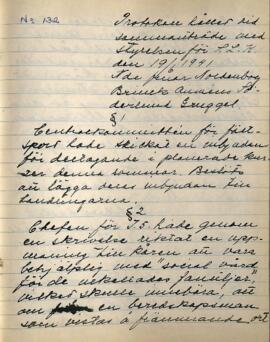 No 132
Protokoll hållet vid
sammanträde med
styrelsen för S.L.K.
den 19/1 1941
Nde fruar Nordenborg
Brinck Amnéus
Gruggel.
§1
Centralkommittén för fält-
sport hade skickat en inbjudan
för deltagande i planerade kur-
ser denna sommar. Beslöts
att lägga deras inbjudan till
handlingarna.
§2
Chefen för I.5. hade genom
en skrivelse riktat en upp-
maning till kåren att vara
behjälplig med "social vård
för de inkallades familjer",
vilket skulle innebära, att
om en beredskapsman
som vistas å främmande ort